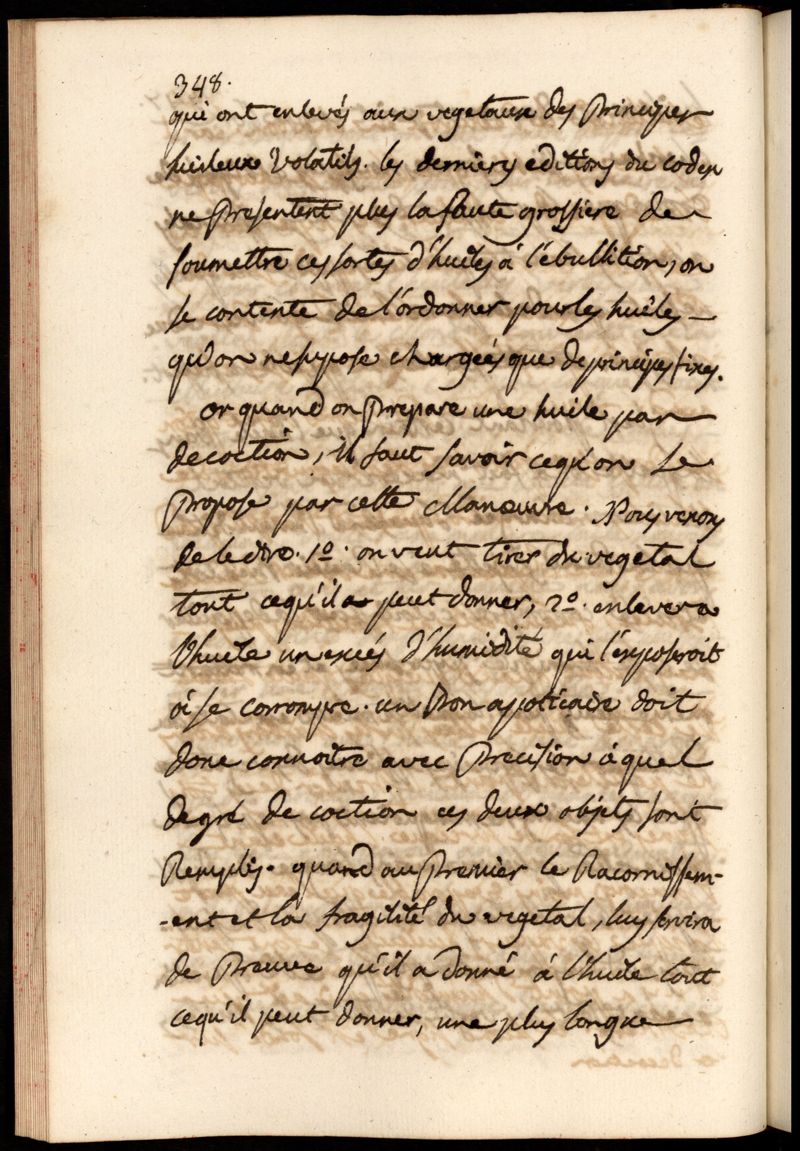 348.
qui ont enlevés aux vegetaux des Principes
huileux Volatils. les derniers editions du codex
ne Presentent plus la faute grossiere de
soumettre ces sortes d'huiles à l'ébullition, on
se contente de l'ordonner pour les huiles
qu'on ne supose chargées que de principes fixes.
or quand on Prepare une huile par
decoction, il faut savoir cequ'on se
Propose par cette Manœuvre. Nous venons
de le dire. 1º. on veut tirer du vegetal
tout cequ'il a peut donner, 2º. enlever a
l'huile un excés d'humidité qui l'exposeroit
à se corrompre. un Bon apoticaire doit
donc connoitre avec Precision à quel
degré de coction ces deux objets sont
Remplis. quand au Premier le Racornissem-
-ent et la fragilité du vegetal, luy servira
de Preuve qu'il a donné à l'huile tout
cequ'il peut donner, une plus longue